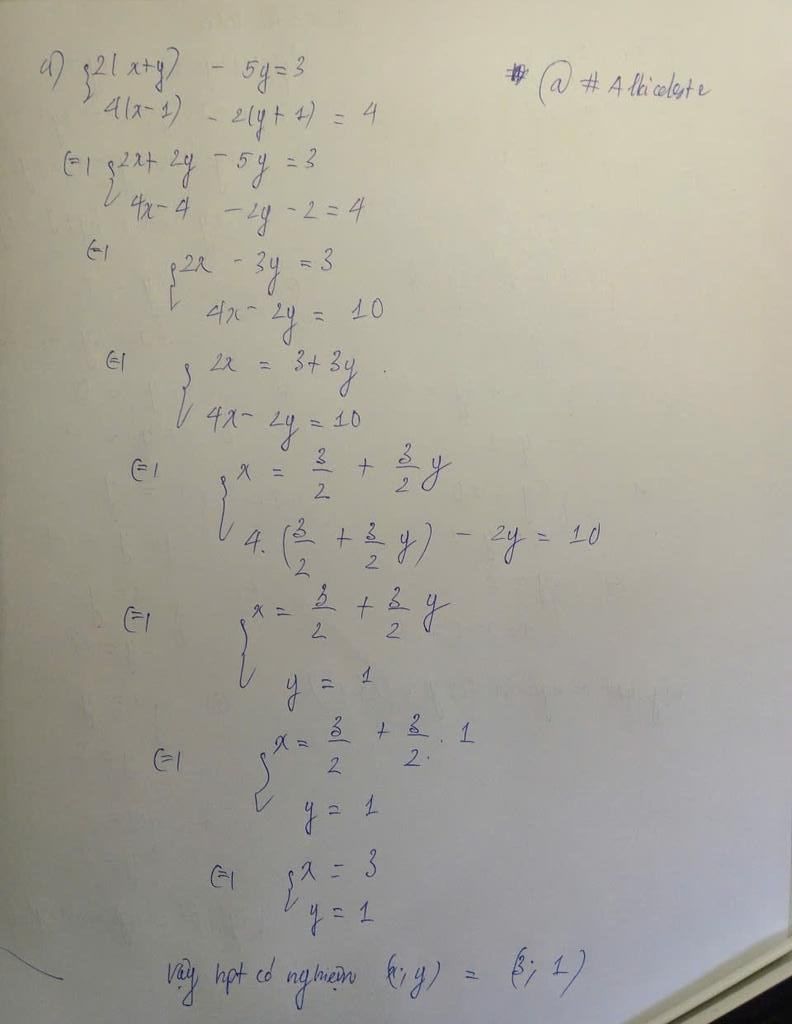 a) { 2(x+y) - 5y = 3
@ # Albiceleste
4(x-1) - 2(y+1) = 4
<=> { 2x + 2y - 5y = 3
4x - 4 - 2y - 2 = 4
<=> { 2x - 3y = 3
4x - 2y = 10
<=> { 2x = 3 + 3y
4x - 2y = 10
<=> { x = 3/2 + 3/2 y
4. (3/2 + 3/2 y) - 2y = 10
<=> { x = 3/2 + 3/2 y
y = 1
<=> { x = 3/2 + 3/2 . 1
y = 1
<=> { x = 3
y = 1
Vậy hpt có nghiệm (x; y) = (3; 1)